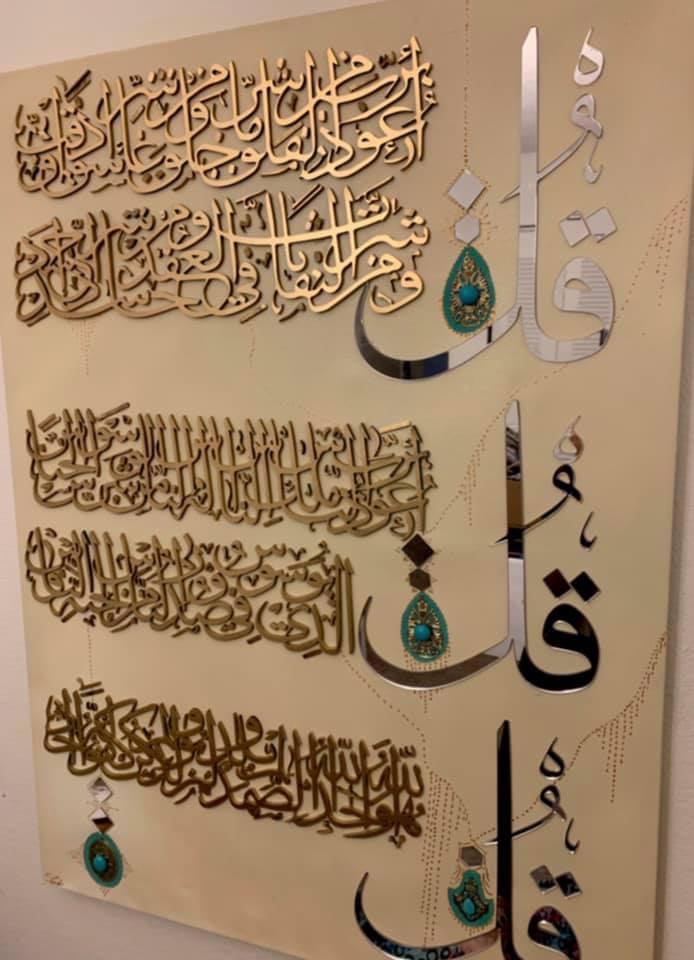 قُل أعوذ برب الفلق من شر ما خلق ومن شر غاسق إذا وقب
ومن شر النفاثات في العقد ومن شر حاسد إذا حسد
قُل أعوذ برب الناس ملك الناس إله الناس من شر الوسواس الخناس
الذي يوسوس في صدور الناس من الجنة والناس
قُل هو الله أحد الله الصمد لم يلد ولم يولد ولم يكن له كفوا أحد